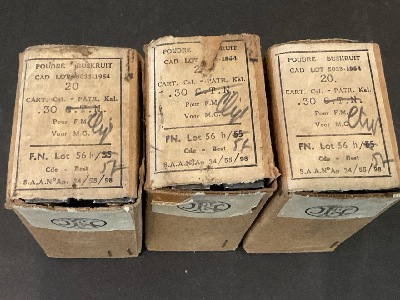 POUDRE BUSKRUIT
CAD LOT 5023-1954
20
CART. Cal. - PATR. Kal.
.30 S.T.N.
Pour F.M.
Voor M.G.
F.N. Lot 56 h/55
Cde - Best
S.A.A. N° Ap. 34/55/98
POUDRE BUSKRUIT
CAD LOT 5023-1954
20
CART. Cal. - PATR. Kal.
.30 S.T.N.
Pour F.M.
Voor M.G.
F.N. Lot 56 h/55
Cde - Best
S.A.A. N° Ap. 34/55/98
POUDRE BUSKRUIT
CAD LOT 5023-1954
20.
CART. Cal. - PATR. Kal.
.30 S.T.N.
Pour F.M.
Voor M.G.
F.N. Lot 56 h/55
Cde - Best
S.A.A. N° Ap. 34/55/98